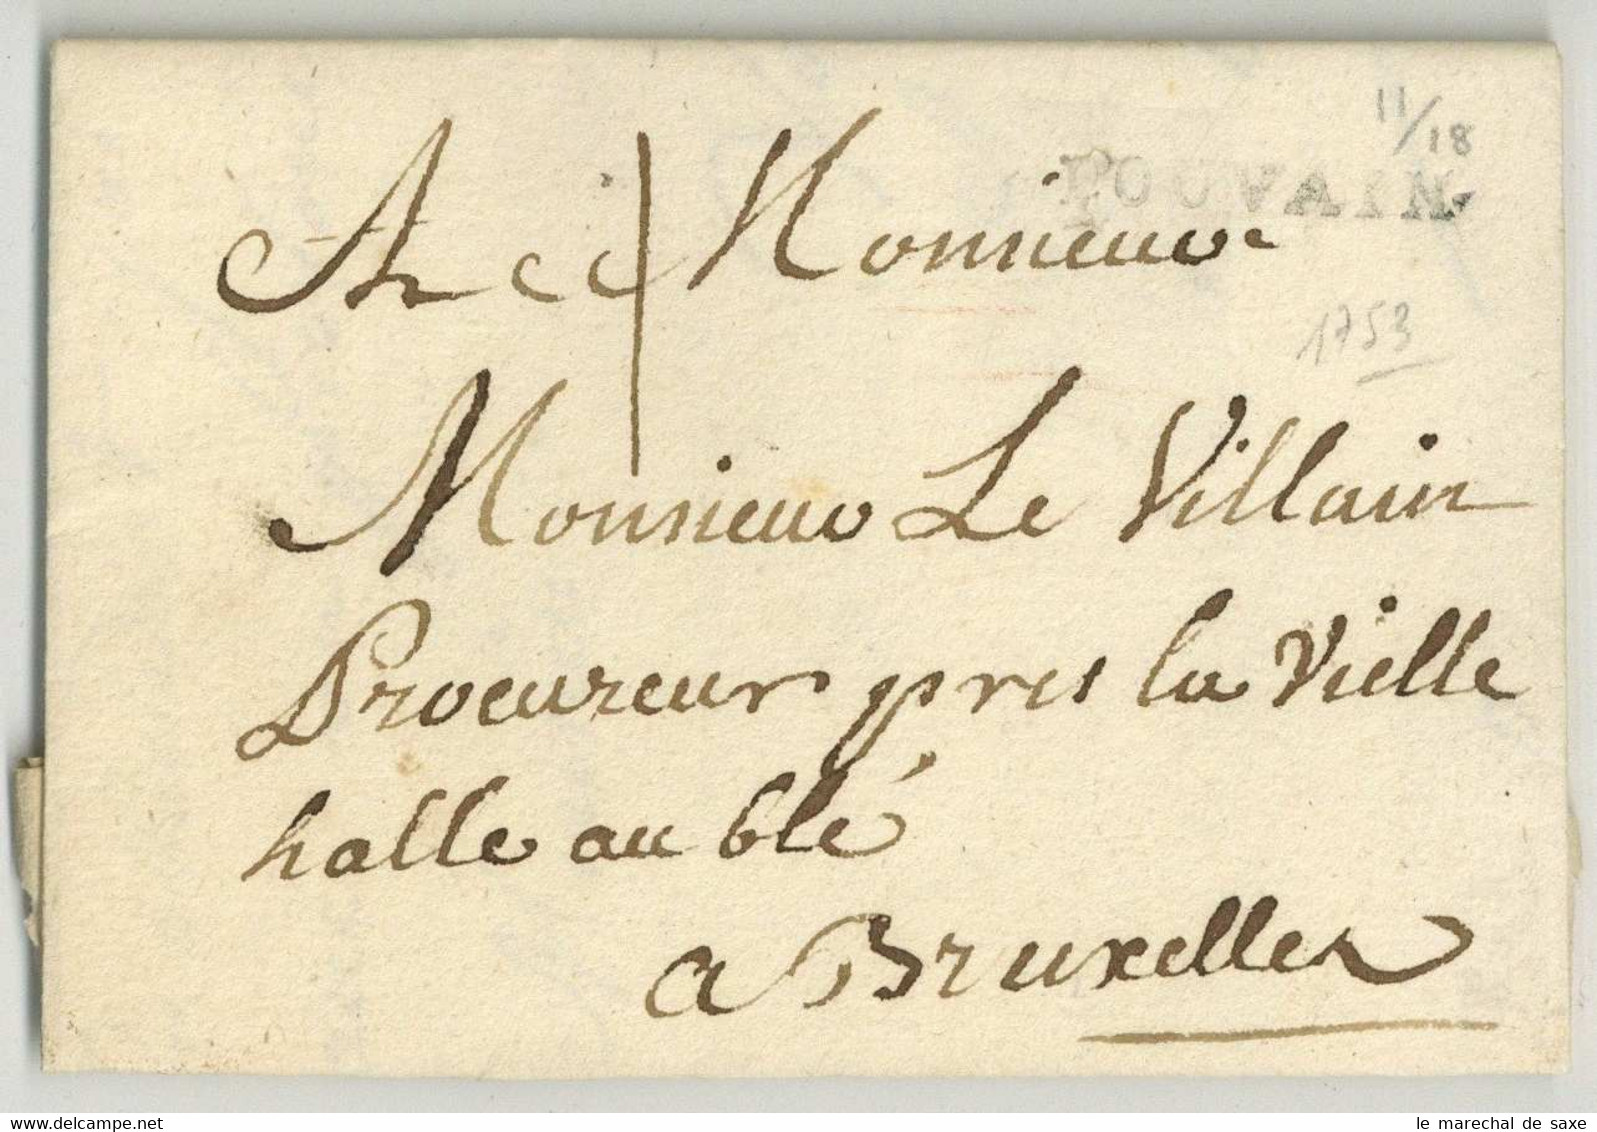 11/18
LOUVAIN
A Monsieur
1753
Monsieur Le Villain
Procureur pres la Vielle
halle au blé
a Bruxelles
delcampe.net
le marechal de saxe